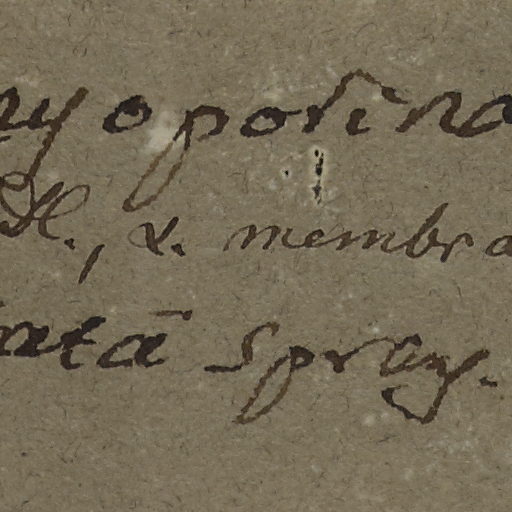 nyoporina
Hl., α. membra
iatā Spreng.